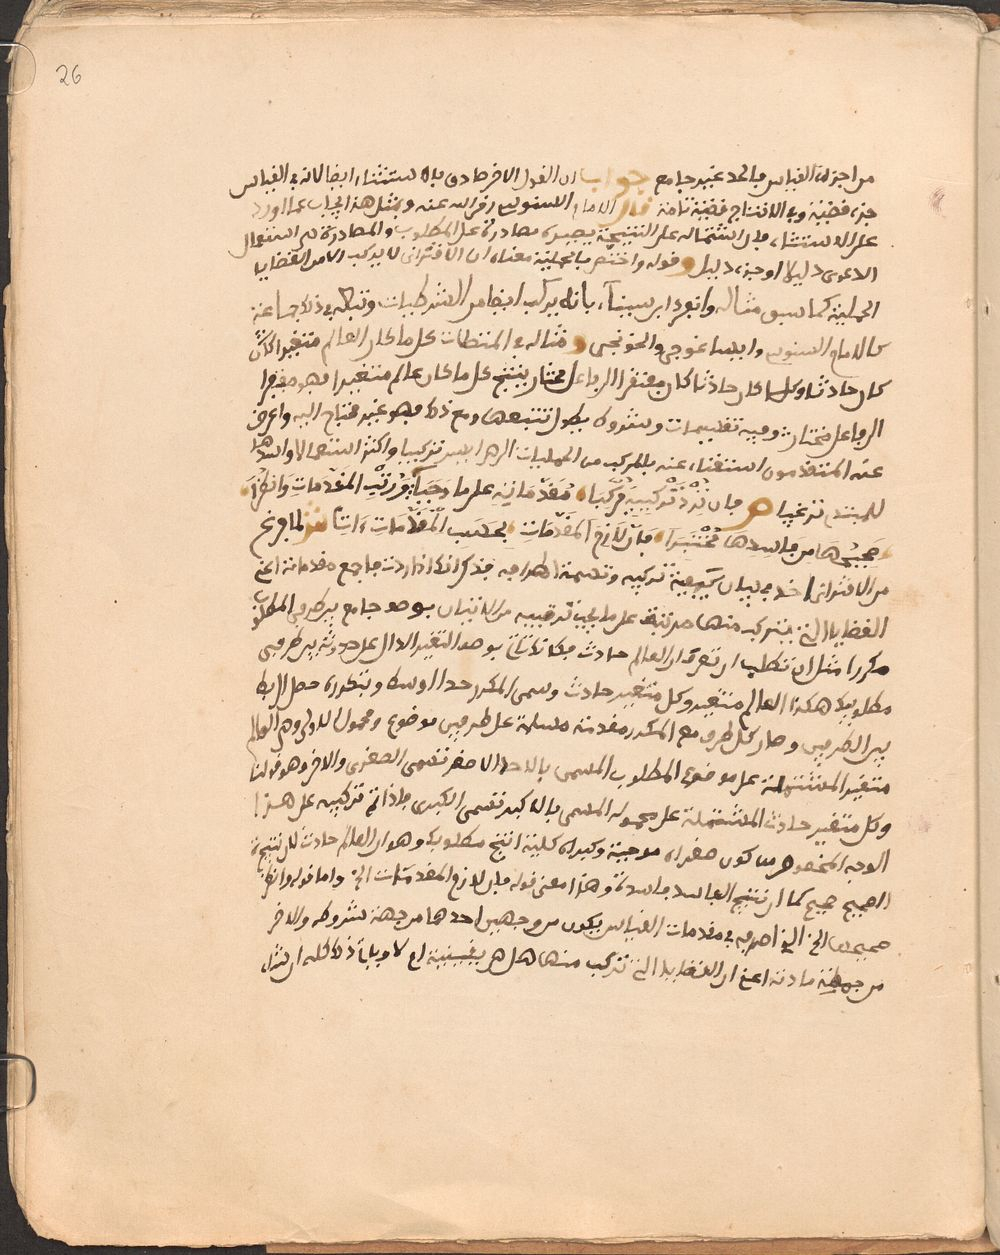 26
من اجزاء القياس فالحد غير جامع جواب ان القول الاخر صادق بالاستثناء ايضا لانه في القياس
جزء قضية وفي الانتاج قضية تامة قال الامام السنوسي رضي الله عنه وبمثل هذا يجاب عما اورد
على الاستثناء فان اشتماله على النتيجة يصيره مصادرة على المطلوب والمصادرة هي استعمال
الدعوى دليلا او جزء دليل وقوله واختص بالحملية معناه ان الاقتراني لا يركب الا من القضايا
الحملية كما سبق مثاله وانفرد ابن سيناء بانه يركب ايضا من الشرطيات وتبعه في ذلك جماعة
كالامام السنوسي وايساغوجي والخونجي ومثاله في المتصلات كل ما كان العالم متغيرا كان
كان حادثا وكلما كان حادثا كان مفتقرا الى فاعل مختار ينتج كل ما كان عالم متغيرا فهو مفتقرا
الى فاعل مختار وفيه تقسيمات وشروط يطول تتبعها ومع ذلك فهو غير محتاج اليه واعرض
عنه المتقدمون استغناء عنه بالمركب من الحمليات الذي هو ايسر تركيبا واكثر استعمالا واسهل
للمبتدي ترغيبا ص فان ترد تركيبه فركبا مقدماته على ما وجبا ورتب المقدمات وانظرا
صحيحها من فاسدها مختبرا فان لازم المقدمات بحسب المقدمات ءات ش لما فرغ
من الاقتراني اخذ في بيان كيفية تركيبه وتسمية اطرافه فذكر انك اذا اردت فاجمع مقدماته اعني
القضايا التي يتركب منها مرتبة على ما يجب ترتيبه من الاتيان بوصف جامع بين طرفي المطلوب
مكررا مثل ان تطلب ان تعرف ان العالم حادث فكانك تاتي بوصف التغير الدال على حدوثه بين طرفي
مطلوبك هكذا العالم متغير وكل متغير حادث وسمي المكرر حدا اوسط وبتكرره حصل الربط
بين الطرفين وصار كل طرف مع المكرر مقدمة مشتملة على طرفين موضوع ومحمول الاولى وهي العالم
متغير المشتملة على موضوع المطلوب المسمى بالحد الاصغر تسمى الصغرى والاخرى وهو قولنا
وكل متغير حادث المشتملة على محموله المسمى بالاكبر تسمى الكبرى فاذا تم تركيبه على هذا
الوجه المخصوص من كون صغراه موجبة وكبراه كلية انتج مطلوبك وهو ان العالم حادث لان نتيجة
الصحيح صحيح كما ان نتيج الفاسد فاسدة وهذا معنى قوله فان لازم المقدمات الخ واما قوله وانظرا
صحيحها الخ اي في مقدمات القياس يكون من وجهين احدهما من جهة شروطه والاخر
من جهة مادته اعني ان القضايا التي تركب منها هل هي يقينية ام لا وياتي ذلك كله ان شاء